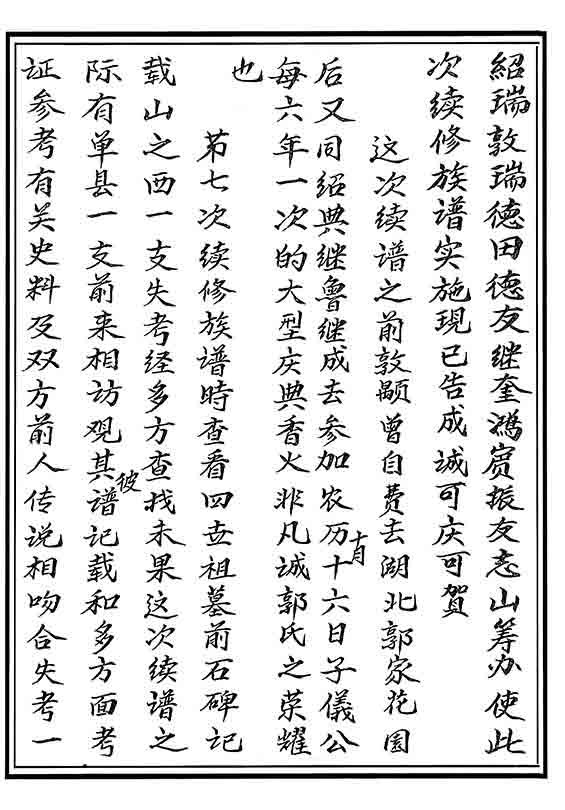 紹瑞敦瑞德田德友继奎鴻賓振友志山筹办使此
次续修族谱实施現已告成诚可庆可賀
这次续谱之前敦顯曾自费去湖北郭家花園
后又同绍典继鲁继成去参加农历十月十六日子儀公
每六年一次的大型庆典香火非凡诚郭氏之荣耀
也
苐七次续修族谱時查看四世祖墓前石碑记
载山之西一支失考经多方查找未果这次续谱之
际有单县一支前来相访观其彼谱记载和多方面考
证参考有关史料及双方前人传说相吻合失考一